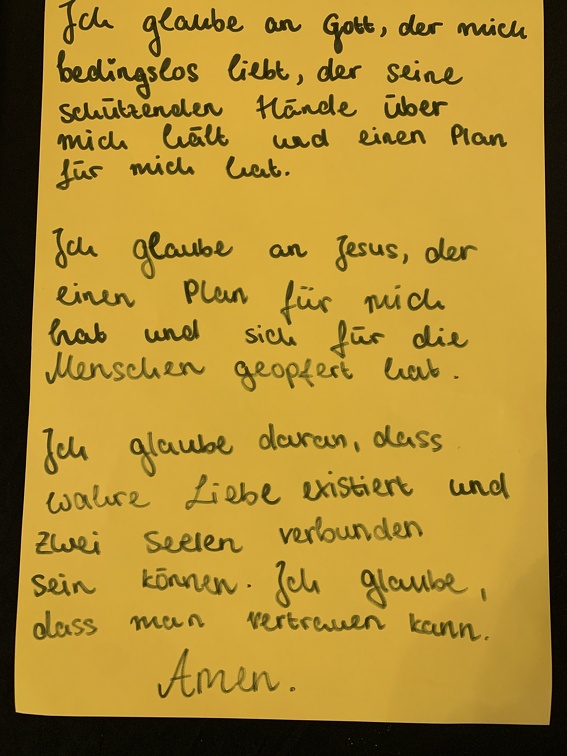 Ich glaube an Gott, der mich
bedingslos liebt, der seine
schützenden Hände über
mich hält und einen Plan
für mich hat.
Ich glaube an Jesus, der
einen Plan für mich
hat und sich für die
Menschen geopfert hat.
Ich glaube daran, dass
wahre Liebe existiert und
zwei Seelen verbunden
sein können. Ich glaube,
dass man vertrauen kann.
Amen.